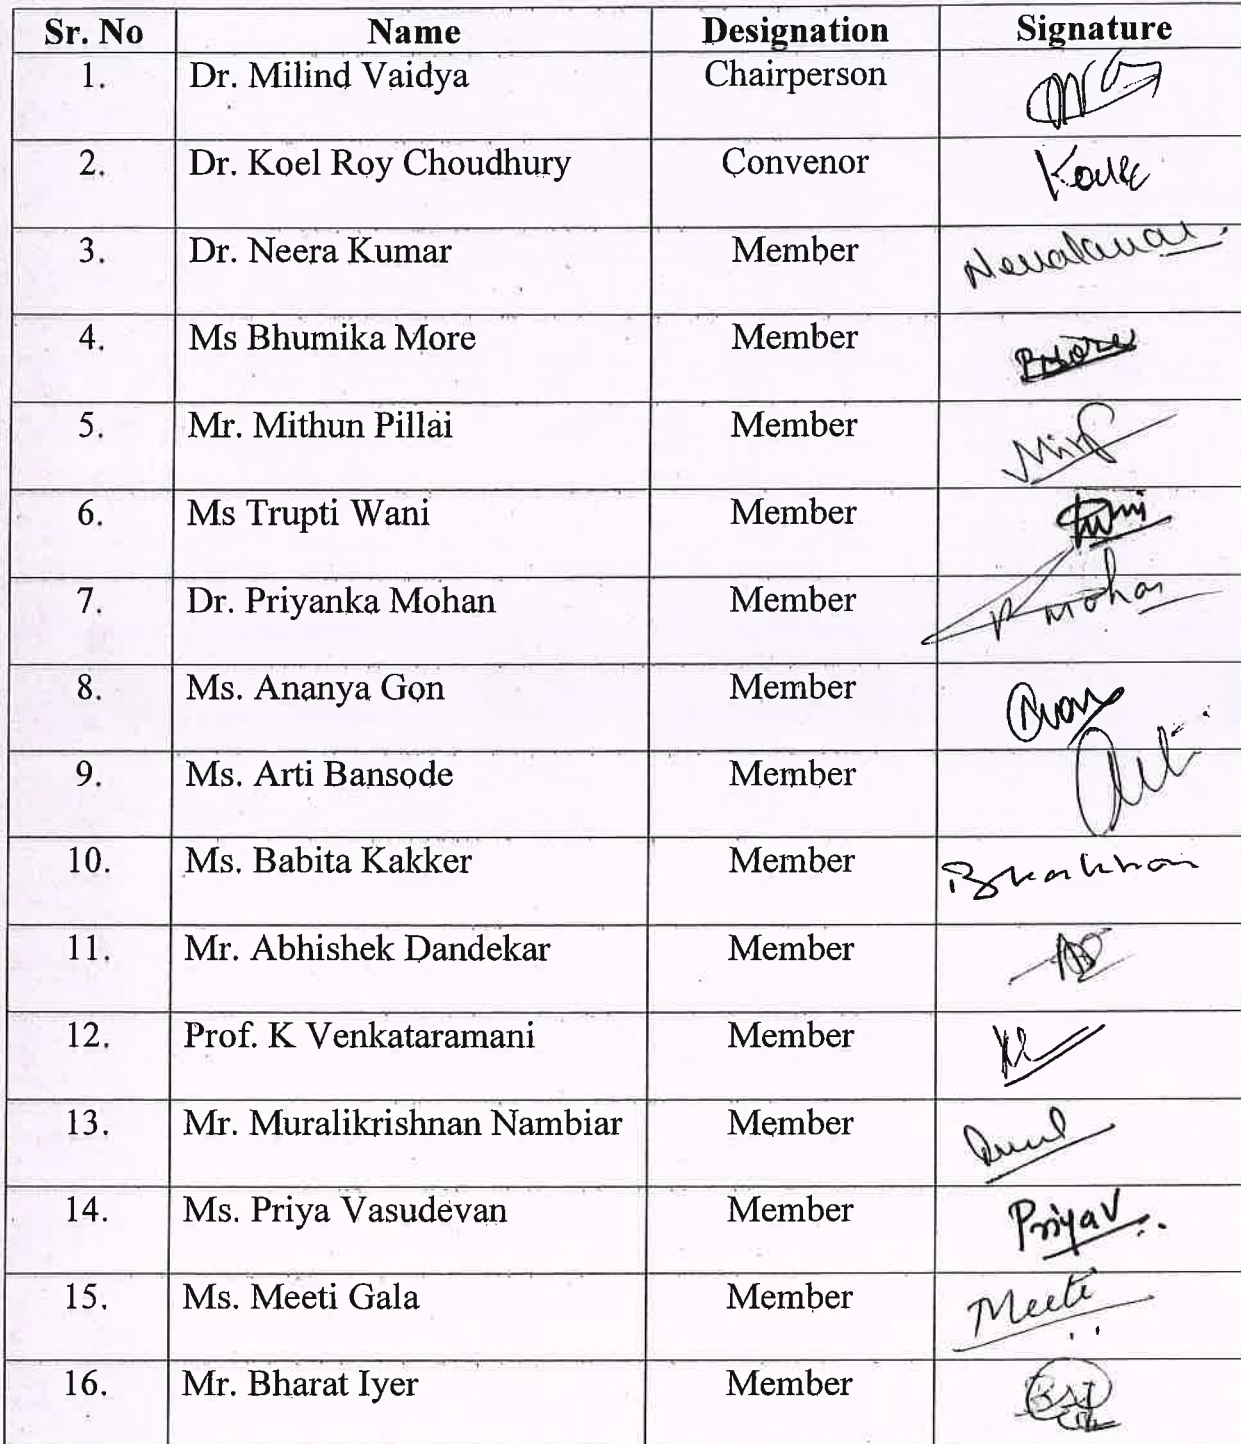 Sr. No Name Designation Signature
1. Dr. Milind Vaidya Chairperson
2. Dr. Koel Roy Choudhury Convenor
3. Dr. Neera Kumar Member
4. Ms Bhumika More Member
5. Mr. Mithun Pillai Member
6. Ms Trupti Wani Member
7. Dr. Priyanka Mohan Member P Mohan
8. Ms. Ananya Gon Member
9. Ms. Arti Bansode Member Arti
10. Ms. Babita Kakker Member
11. Mr. Abhishek Dandekar Member
12. Prof. K Venkataramani Member
13. Mr. Muralikrishnan Nambiar Member
14. Ms. Priya Vasudevan Member PriyaV
15. Ms. Meeti Gala Member Meeti
16. Mr. Bharat Iyer Member